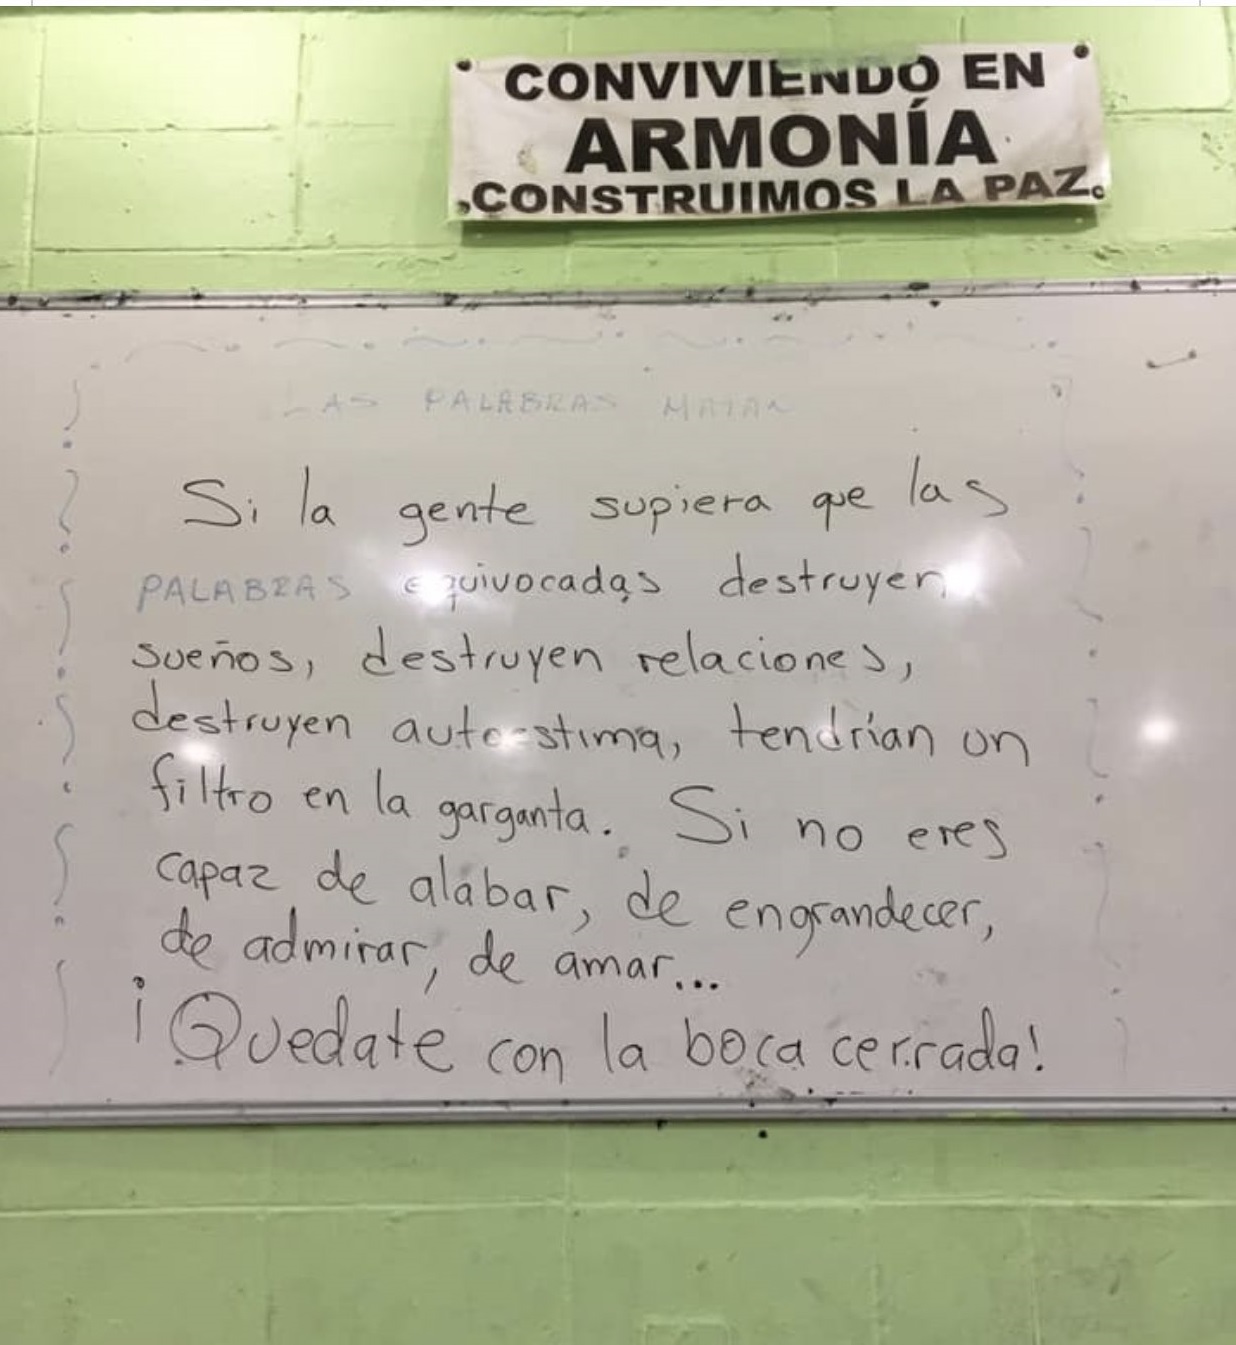 CONVIVIENDO EN
ARMONÍA
CONSTRUIMOS LA PAZ.
LAS PALABRAS MATAN
Si la gente supiera que las
PALABRAS equivocadas destruyen
sueños, destruyen relaciones,
destruyen autoestima, tendrían un
filtro en la garganta. Si no eres
capaz de alabar, de engrandecer,
de admirar, de amar...
¡Quedate con la boca cerrada!